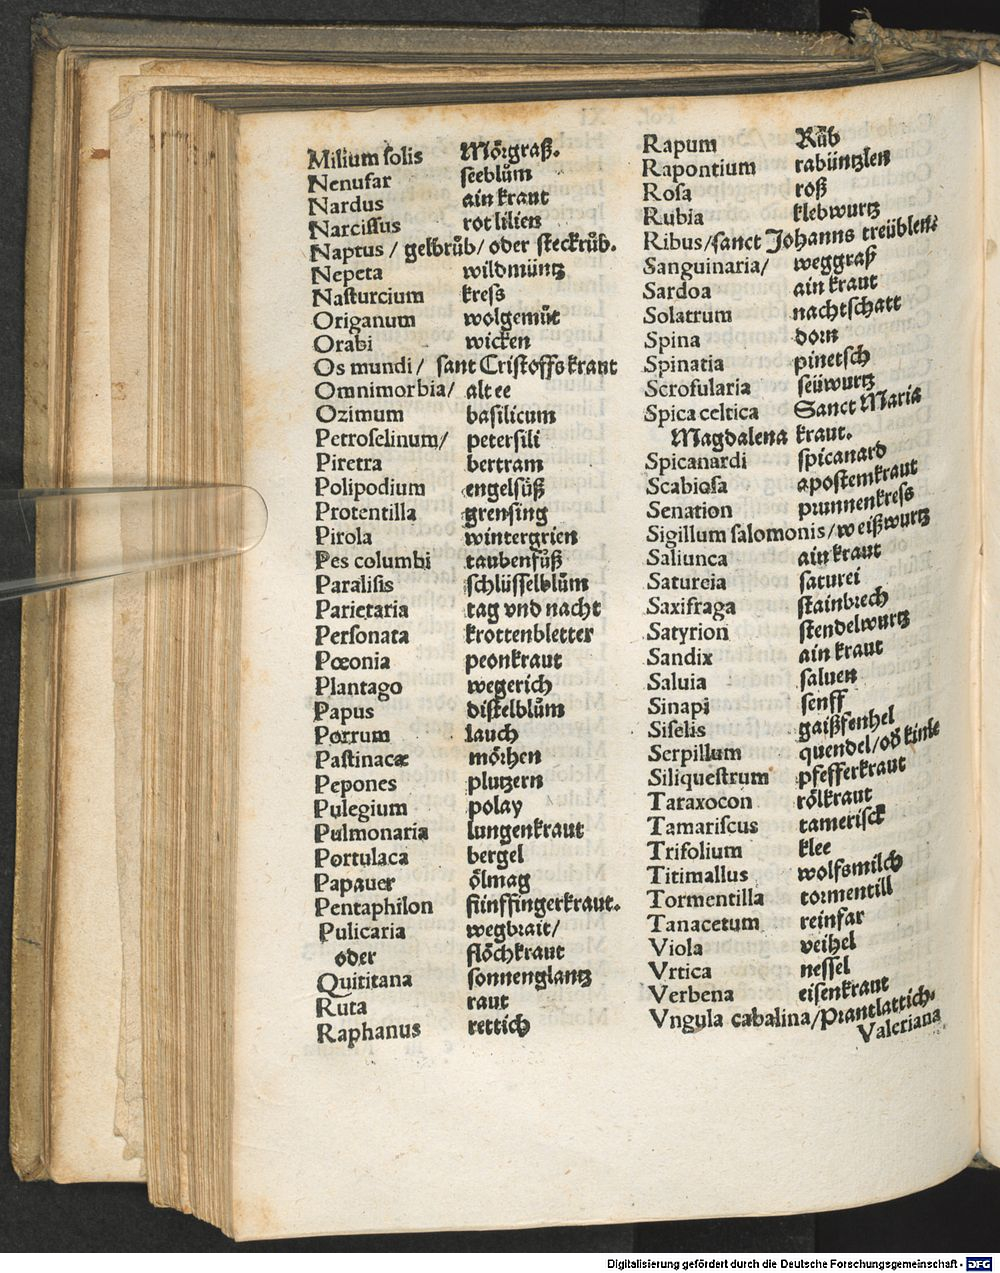 Milium ſolis Moͤrgraß.
Nenufar ſeebluͦm
Nardus ain kraut
Narciſſus rot lilien
Naptus / gelbruͦb/ oder ſteckruͦb.
Nepeta wildmüntz
Naſturcium kreſs
Origanum wolgemuͦt
Orabi wicken
Os mundi / ſant Criſtoffs kraut
Omnimorbia/ alt ee
Ozimum baſilicum
Petroſelinum/ peterſili
Piretra bertram
Polipodium engelſüß
Protentilla grenſing
Pirola wintergrien
Pes columbi taubenfuͦß
Paraliſis ſchlüſſelbluͦm
Parietaria tag vnd nacht
Perſonata krottenbletter
Pœonia peonkraut
Plantago wegerich
Papus diſtelbluͦm
Porrum lauch
Paſtinacæ moͤrhen
Pepones plutzern
Pulegium polay
Pulmonaria lungenkraut
Portulaca bergel
Papauer oͤlmag
Pentaphilon fünffingerkraut.
Pulicaria wegbrait/
oder floͤchkraut
Quititana ſonnenglantz
Ruta raut
Raphanus rettich
Rapum Ruͦb
Rapontium rabüntzlen
Roſa roß
Rubia klebwurtz
Ribus/ſanct Johanns treüblen.
Sanguinaria/ weggraß
Sardoa ain kraut
Solatrum nachtſchatt
Spina dorn
Spinatia pinetſch
Scrofularia ſeüwurtz
Spica celtica Sanct Maria
Magdalena kraut.
Spicanardi ſpicanard
Scabioſa apoſtemkraut
Senation prunnenkreſs
Sigillum ſalomonis/weißwurtz
Saliunca ain kraut
Satureia ſaturei
Saxifraga ſtainbrech
Satyrion ſtendelwurtz
Sandix ain kraut
Saluia ſaluen
Sinapi ſenff
Siſelis gaißfenhel
Serpillum quendel/od̄ kinle
Siliqueſtrum pfefferkraut
Taraxocon roͤlkraut
Tamariſcus tameriſck
Trifolium klee
Titimallus wolfsmilch
Tormentilla tormentill
Tanacetum reinfar
Viola veihel
Vrtica neſſel
Verbena eiſenkraut
Vngula cabalina/Prantlattich.
Valeriana
Digitalisierung gefördert durch die Deutsche Forschungsgemeinschaft - DFG